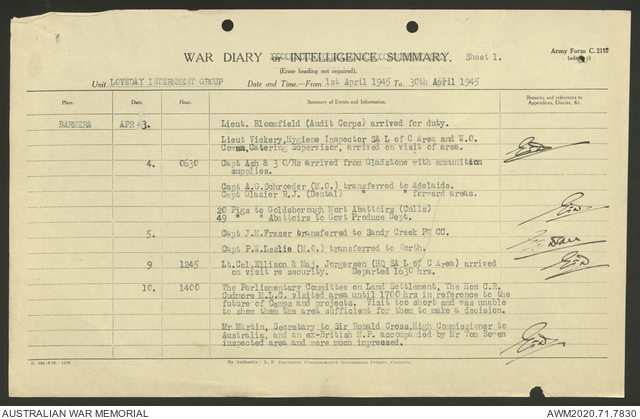 WAR DIARY or INTELLIGENCE SUMMARY. Sheet 1.
Army Form C.2118
(Erase heading not required).
Unit LOVEDAY INTERNMENT GROUP Date and Time.—From 1st April 1945 To 30th April 1945
Place. Date. Hour. Summary of Events and Information. Remarks and references to Appendices, Diaries, &c.
BARMERA APR 3. Lieut. Bloomfield (Audit Corps) arrived for duty.
Lieut Vickery, Hygiene Inspector SA L of C Area and W.O.
Catering Supervisor, arrived on visit of area.
4. 0630 Capt Ash & 3 O/Rs arrived from Gladstone with ammunition
supplies.
Capt A.G. Schroeder (M.O.) transferred to Adelaide.
Capt Glazier R.J. (Dental) " " forward areas.
20 Pigs to Goldsborough Mort Abattoirs (Culls)
49 " " Abattoirs to Govt Produce Dept.
5. Capt J.M. Frazer transferred to Sandy Creek PW CC.
Capt P.W. Leslie (M.O.) transferred to North.
9 1245 Lt.Col. Ellison & Maj. Jorgensen (HQ SA L of C Area) arrived
on visit re security. Departed 1630 hrs.
10. 1400 The Parliamentary Committee on Land Settlement, The Hon C.R.
Cudmore M.L.C. visited area until 1700 hrs in reference to the
future of Camps and projects. Visit too short and was unable
to show them the area sufficient for them to make a decision.
Mr Martin, Secretary to Sir Ronald Cross, High Commissioner to
Australia, and an ex-British M.P. accompanied by Mr Tom Bowen
inspected area and were much impressed.
By Authority: L. F. Johnston, Commonwealth Government Printer, Canberra.
AUSTRALIAN WAR MEMORIAL AWM2020.71.7830